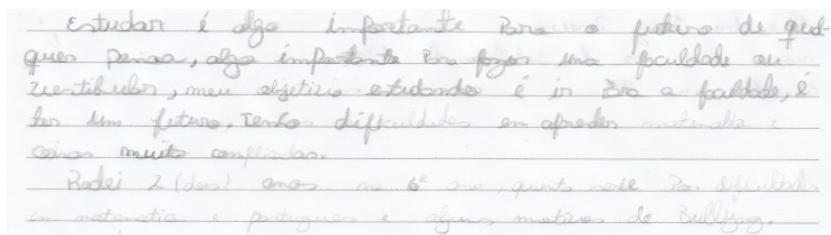 estudar é algo importante Para o futuro de qual-
quer pessoa, algo importante Para fazer uma faculdade ou
vestibular, meu objetivo estudando é ir Para a faculdade, é
ter um futuro, Tenho dificuldades em aprender matematica e
coisas muito complicadas.
Rodei 2 (dois) anos no 6º ano, quinta serie Por dificuldades
em matematica e portugues e alguns motivos de Bullyng.